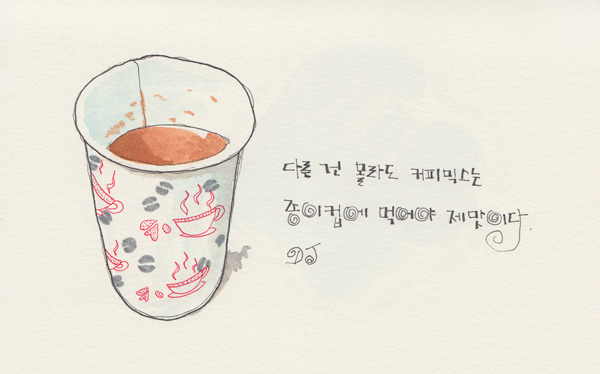 다른 건 몰라도 커피믹스는
종이컵에 먹어야 제맛이다.
DJ